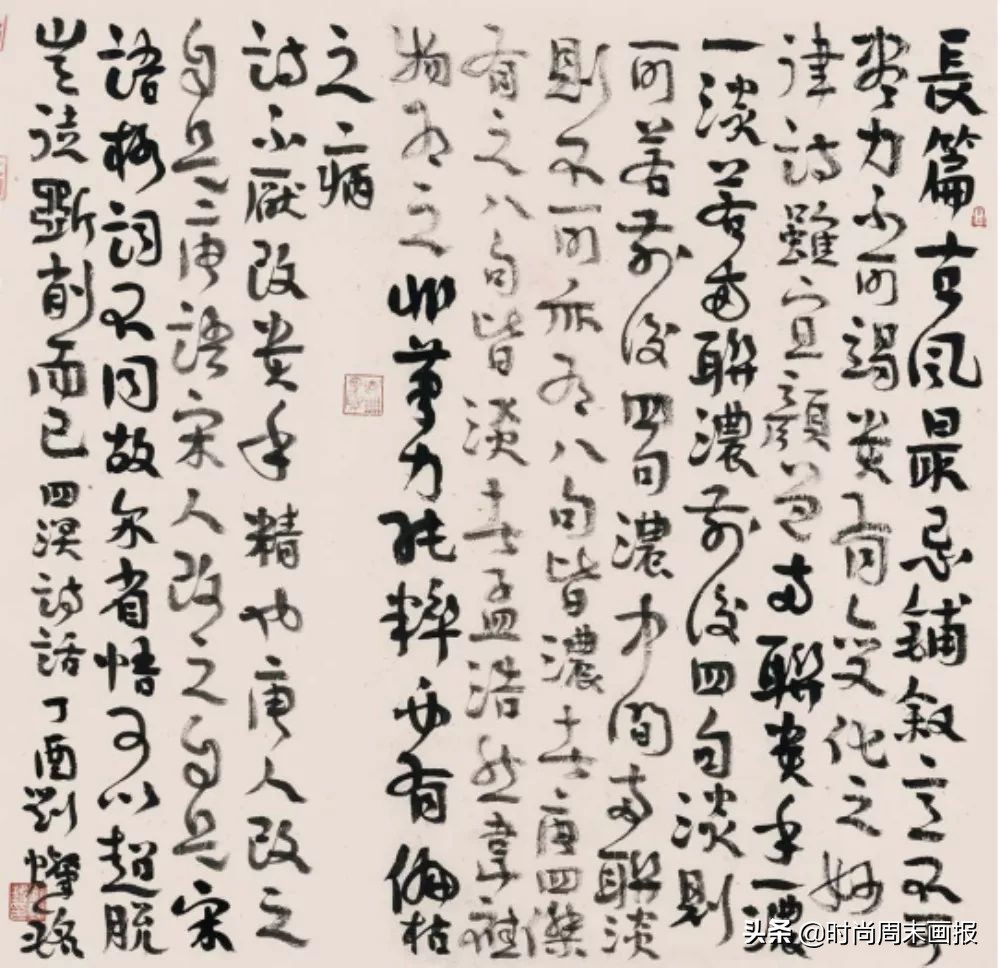 長篇古風最忌鋪敘意不可
盡力不可竭貴有變化之妙
律詩雖宜顏色兩聯貴乎一濃
一淡若兩聯濃前後四句淡則
可若前後四句濃中間兩聯淡
則不可亦有八句皆濃者唐四傑
有之八句皆淡者孟浩然韋應
物有之非筆力純粹必有偏枯
之病
詩不厭改貴乎精也唐人改之
自是唐語宋人改之自是宋
語格詞不同故爾省悟可以超脫
豈徒斲削而已 四溟詩話 丁酉劉燦銘
头条 @时尚周末画报